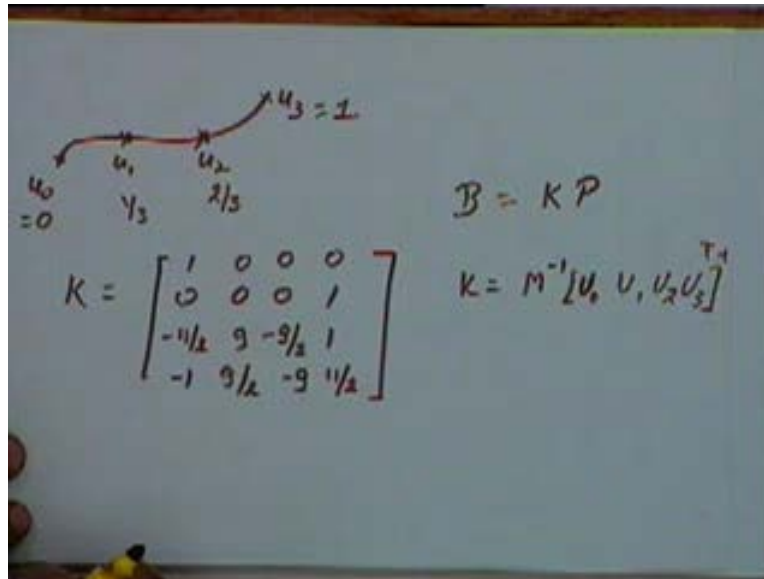 u₃ = 1
u₀ u₁ u₂
= 0 1/3 2/3
B = K P
K = [ 1 0 0 0
0 0 0 1
-11/2 9 -9/2 1
-1 9/2 -9 11/2 ]
K = M⁻¹ [U₀ U₁ U₂ U₃]ᵀ⁻¹